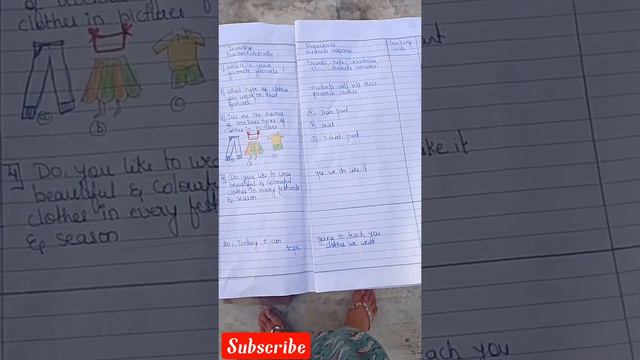 clothes in pictures
ⓐ
ⓑ
ⓒ
4] Do, you like to wea
beautiful & colourfu
clothes in every fest
& season
Learning
Teacher Activity
1) Which is your
favorite festivals !
2) What type of clothes
you wear on that
festivals
3] Tell me the names
of various types of
clothes in pictures !
4] Do, you like to wear
beautiful & colourful
clothes in every festivals
& season
So, Today I am
topic
Students response
Diwali, holi, christmas,
etc. (students answers)
students will tell their
favorite clothes
ⓐ Jean pant
ⓑ Skirt
ⓒ T-shirt pant
yes we do like it
going to teach you
clothes we wear
Teaching
ant
ke it
ach you
Subscribe